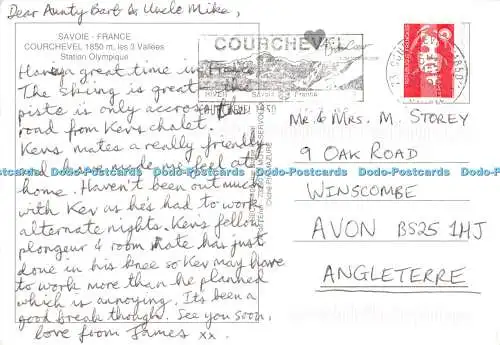 Dear Aunty Barb & Uncle Mike,
SAVOIE - FRANCE
COURCHEVEL 1850 m, les 3 Vallées
Station Olympique
Having great time in
The skiing is great & the
piste is only accross the
road from Kevs chalet.
Kevs mates a really friendly
and have made me feel at
home. Haven't been out much
with Kev as he's had to work
alternate nights. Kevs fellow
plongeur & room mate has just
done in his knee so Kev may have
to work more than he planned
which is annoying. Its been a
good break though. See you soon,
love from James xx.
COURCHEVEL
HIVER Savoie France
Mr & Mrs. M. STOREY
9 OAK ROAD
WINSCOMBE
AVON BS25 1HJ
ANGLETERRE
Postcards Postcards Postcards Postcards Postcards Postcards